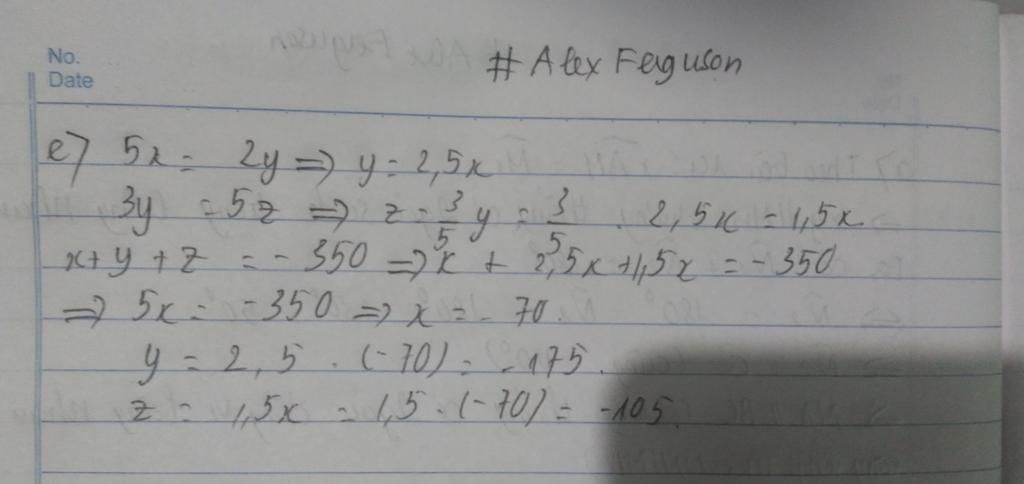 No.
Date
# Alex Ferguson
e) 5x = 2y => y = 2,5x
3y = 5z => z = 3/5 y = 3/5 . 2,5x = 1,5x.
x + y + z = - 350 => x + 2,5x + 1,5x = - 350
=> 5x = - 350 => x = - 70.
y = 2,5 . (-70) = -175.
z = 1,5x = 1,5 . (-70) = -105.